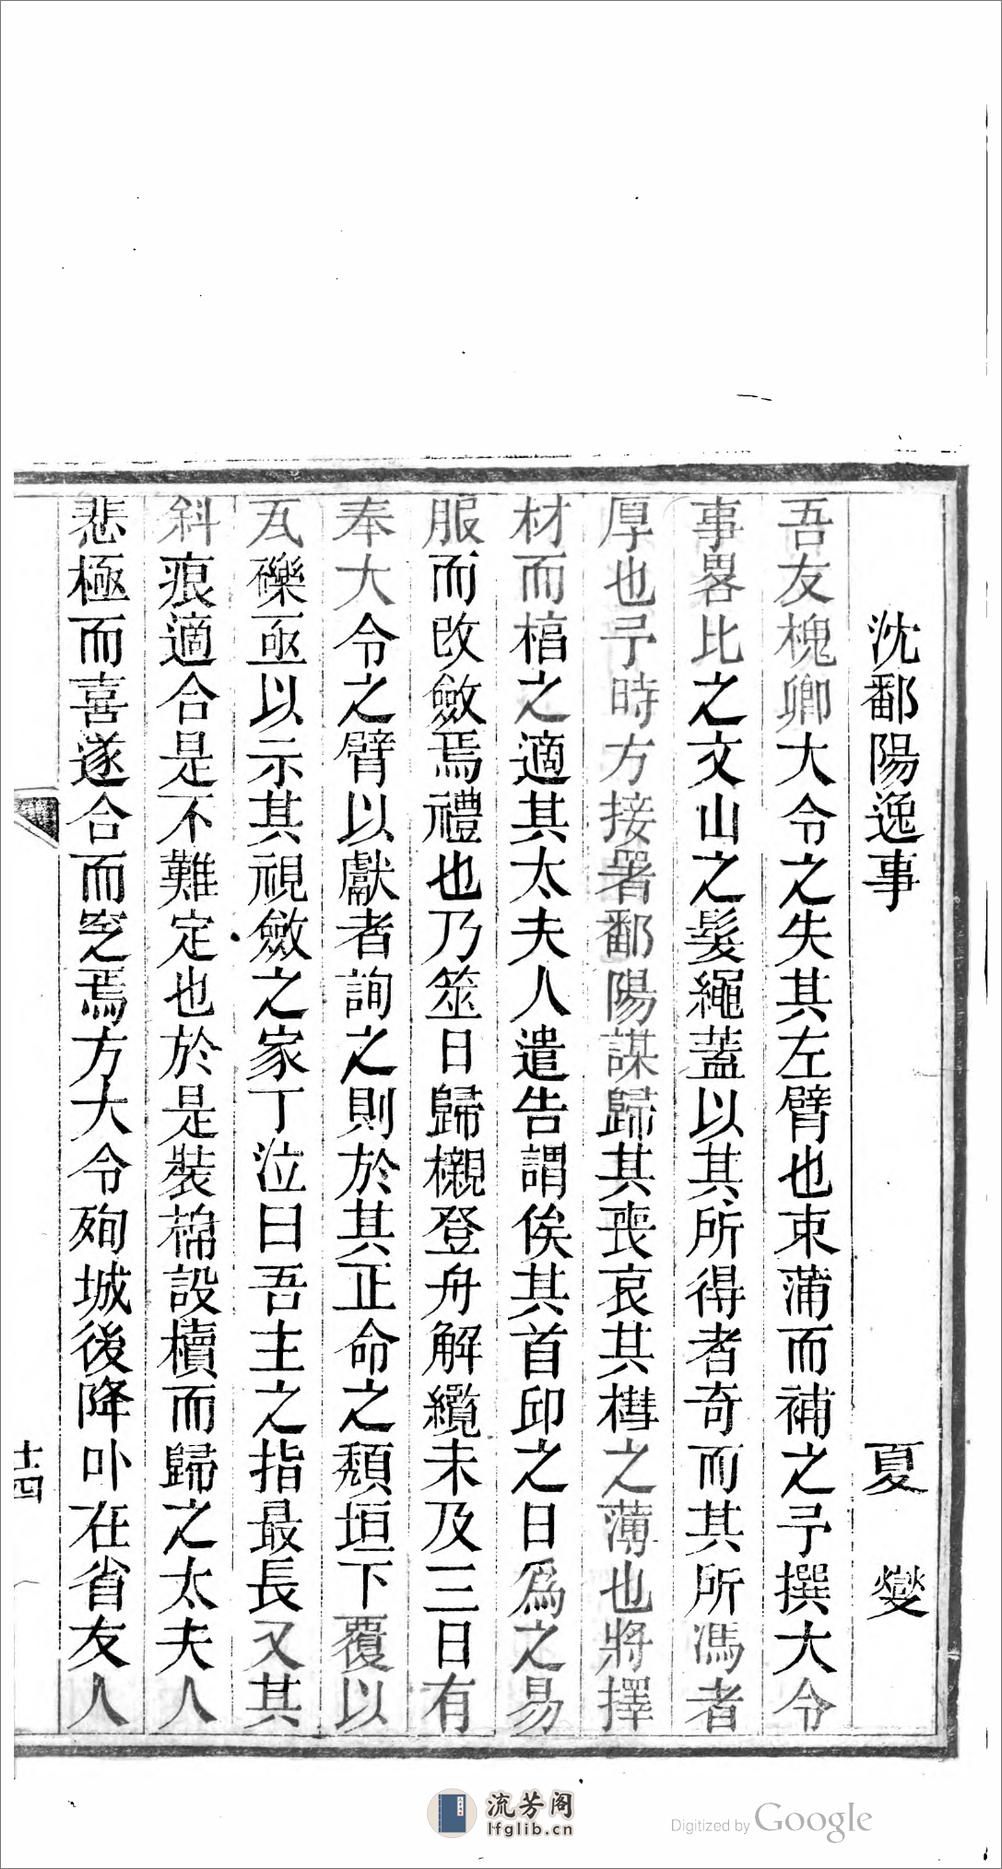 沈鄱陽逸事 夏 燮
吾友槐卿大令之失其左臂也束蒲而補之予撰大令
事畧比之文山之髮繩蓋以其所得者奇而其所馮者
厚也予時方接署鄱陽謀歸其喪哀其槥之薄也將擇
材而棺之適其太夫人遣告謂俟其首邱之日爲之易
服而改斂焉禮也乃筮日歸櫬登舟解纜未及三日有
奉大令之臂以獻者詢之則於其正命之頹垣下覆以
瓦礫亟以示其視斂之家丁泣曰吾主之指最長又其
斜痕適合是不難定也於是裝棉設櫝而歸之太夫人
悲極而喜遂合而窆焉方大令殉城後降乩在省友人
十四
流芳阁
lfglib.cn
Digitized by Google